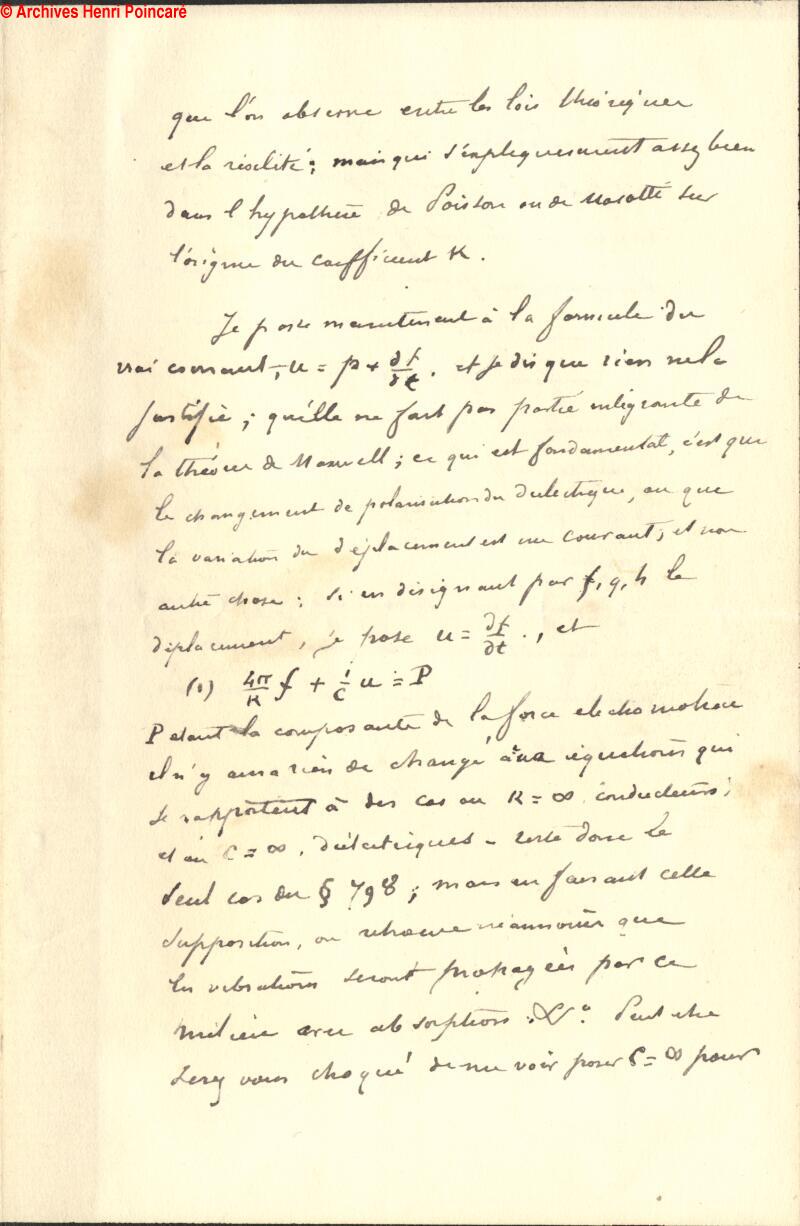 © Archives Henri Poincaré
que l'on observe entre les lois théoriques
et la réalité ; mais qui s'expliqueraient assez bien
dans l'hypothèse de Poisson ou de Mosotti sur
l'origine du coefficient K.
Je passe maintenant à la formule du
vrai courant, u = p + ∂f/∂t. et je dis que rien ne la
justifie ; qu'elle ne fait pas partie intégrante de
la théorie de Maxwell ; ce qui est fondamental, c'est que
le changement de polarisation du diélectrique, ou que
la variation du déplacement est un courant, et non
autre chose : si en désignant par f, g, h le
déplacement, je pose u = ∂f/∂t ., et
(1) 4π/K f + 1/C u = P
P étant la composante de la force électromotrice
il n'y aura rien de changé aux équations qui
se rapportent à des cas où K = ∞ conducteurs ;
et où C = ∞ . diélectriques - reste donc le
seul cas du § 798 ; mais en faisant cette
supposition, on retrouve néanmoins que
les vibrations seront propagées par ce
milieu avec absorption. Peut être
serez vous choqué de me voir poser C = ∞ pour